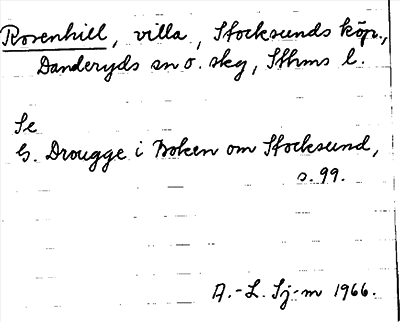 Rosenhill, villa, Stocksunds köp.,
Danderyds sn o. skg, Sthms l.
Se
G. Drougge i Boken om Stocksund,
s. 99.
A.-L. Sj-m 1966.